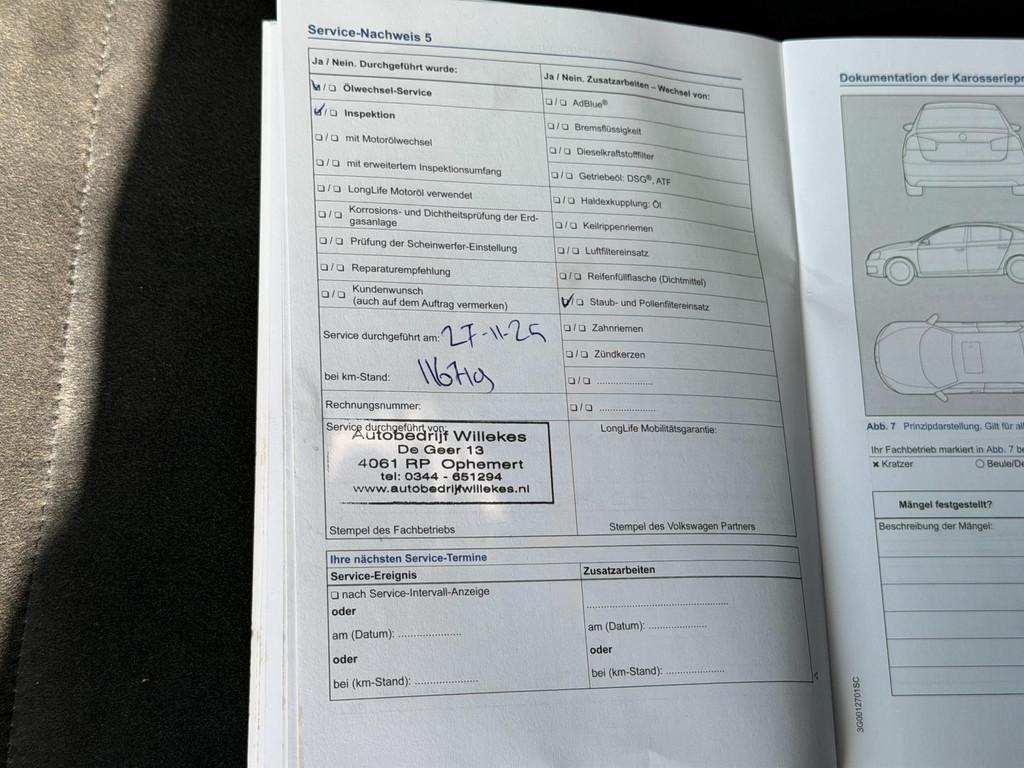 Service-Nachweis 5
Ja / Nein. Durchgeführt wurde:
☑/❏ Ölwechsel-Service
☑/❏ Inspektion
❏/❏ mit Motorölwechsel
❏/❏ mit erweitertem Inspektionsumfang
❏/❏ LongLife Motoröl verwendet
❏/❏ Korrosions- und Dichtheitsprüfung der Erd-
gasanlage
❏/❏ Prüfung der Scheinwerfer-Einstellung
❏/❏ Reparaturempfehlung
❏/❏ Kundenwunsch
(auch auf dem Auftrag vermerken)
Service durchgeführt am: 27-11-25
bei km-Stand:
Rechnungsnummer:
Service durchgeführt von:
Autobedrijf Willekes
De Geer 13
4061 RP Ophemert
tel: 0344 - 651294
www.autobedrijfwillekes.nl
Stempel des Fachbetriebs
Ja / Nein. Zusatzarbeiten – Wechsel von:
❏/❏ AdBlue®
❏/❏ Bremsflüssigkeit
❏/❏ Dieselkraftstofffilter
❏/❏ Getriebeöl: DSG®, ATF
❏/❏ Haldexkupplung: Öl
❏/❏ Keilrippenriemen
❏/❏ Luftfiltereinsatz
❏/❏ Reifenfüllflasche (Dichtmittel)
☑/❏ Staub- und Pollenfiltereinsatz
❏/❏ Zahnriemen
❏/❏ Zündkerzen
❏/❏ .....................
❏/❏ .....................
LongLife Mobilitätsgarantie:
Stempel des Volkswagen Partners
Ihre nächsten Service-Termine
Service-Ereignis
❏ nach Service-Intervall-Anzeige
oder
am (Datum): .....................
oder
bei (km-Stand): .....................
Zusatzarbeiten
.....................
am (Datum): .....................
oder
bei (km-Stand): .....................
Dokumentation der Karosseriepr
Abb. 7 Prinzipdarstellung. Gilt für al
Ihr Fachbetrieb markiert in Abb. 7 be
× Kratzer
○ Beule/De
Mängel festgestellt?
Beschreibung der Mängel:
3G0012701SC